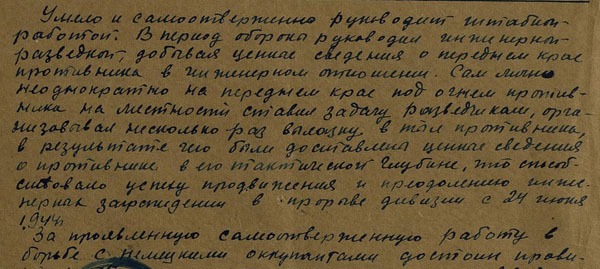 Умело и самоотверженно руководит штабной
работой. В период обороны руководил инженерной
разведкой, добывая ценные сведения о переднем крае
противника в инженерном отношении. Сам лично
неоднократно на переднем крае под огнем против-
ника на местности ставил задачу разведчикам, орга-
низовывал несколько раз вылазку в тыл противника,
в результате чего были доставлены ценные сведения
о противнике в его тактической глубине, что способ-
ствовало успеху продвижения и преодолению инже-
нерных заграждений в прорыве дивизии с 24 июня
1944г.
За проявленную самоотверженную работу в
борьбе с немецкими оккупантами достоин прави-